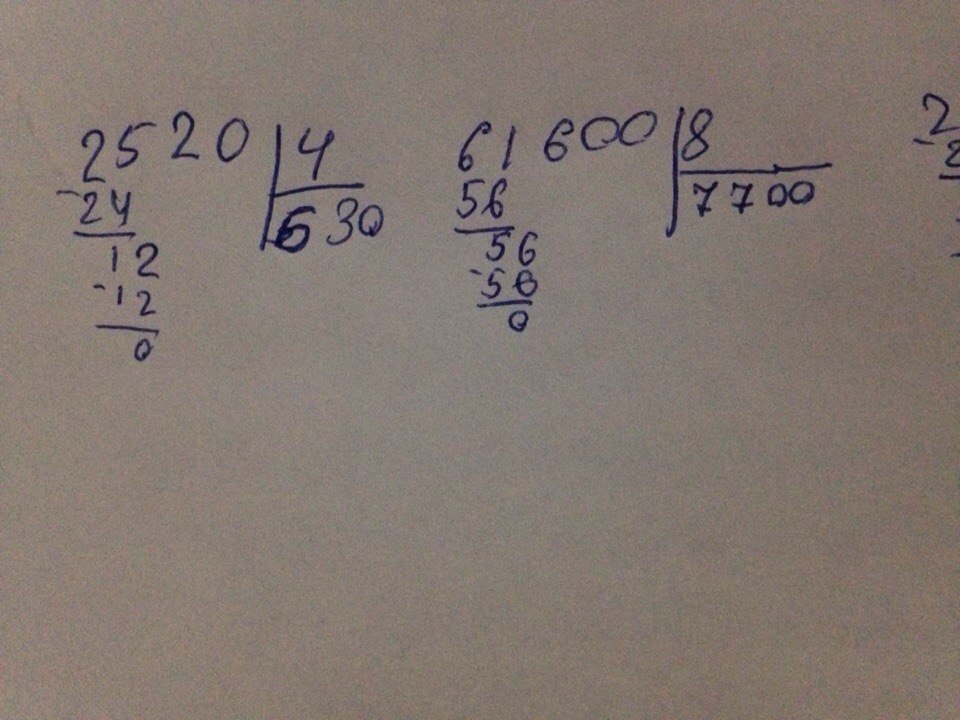 2520 4
-24 630
12
-12
0
61600 8
56 7700
56
-56
0
2
-8